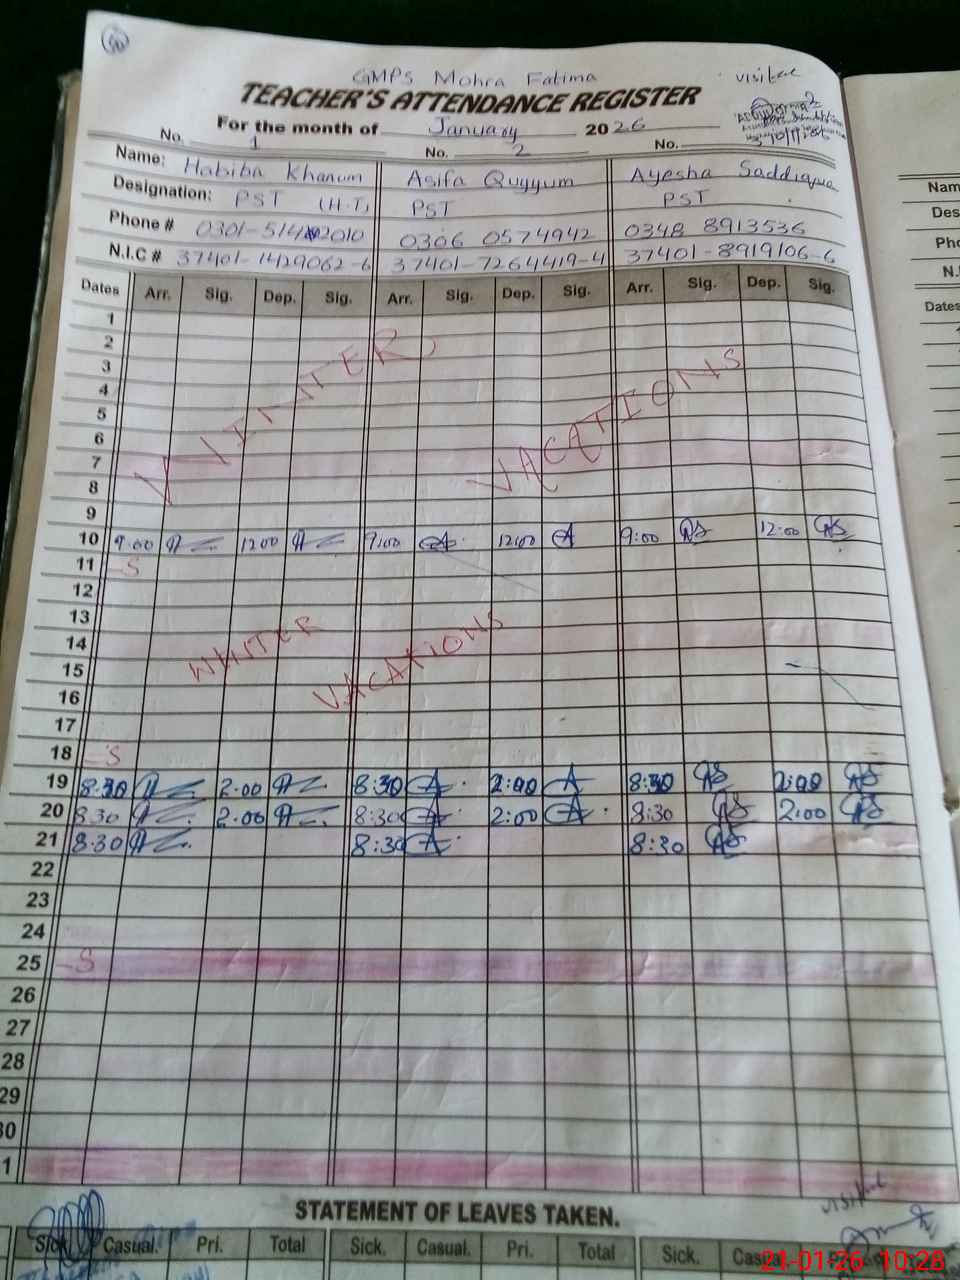 GMPS Mohra Fatima
visited
TEACHER'S ATTENDANCE REGISTER
For the month of January 2026
No. 1 No. 2 No.
Name: Habiba Khanum Asifa Quyyum Ayesha Saddiqua
Designation: PST (H.T) PST PST
Phone # 0306 0574942 0348 8913536
N.I.C # 37401-1429062-6 37401-7264419-4 37401-8919106-6
Dates Arr. Sig. Dep. Sig. Arr. Sig. Dep. Sig. Arr. Sig. Dep. Sig.
1
2
3
4
5
6
7
8
9
WINTER VACATIONS
10 9:00 12:00 9:00 12:00 9:00 12:00
11 S
12
13
14
15
16
17
WINTER VACATIONS
18 S
19 8:30 2:00 8:30 2:00 8:30 2:00
20 8:30 2:00 8:30 2:00 8:30 2:00
21 8:30 8:30 8:30
22
23
24
25 S
26
27
28
29
30
31
STATEMENT OF LEAVES TAKEN.
visited
Sick. Casual. Pri. Total Sick. Casual. Pri. Total Sick. Casual
21-01-26 10:28
Name
Des
Pho
N.I
Dates